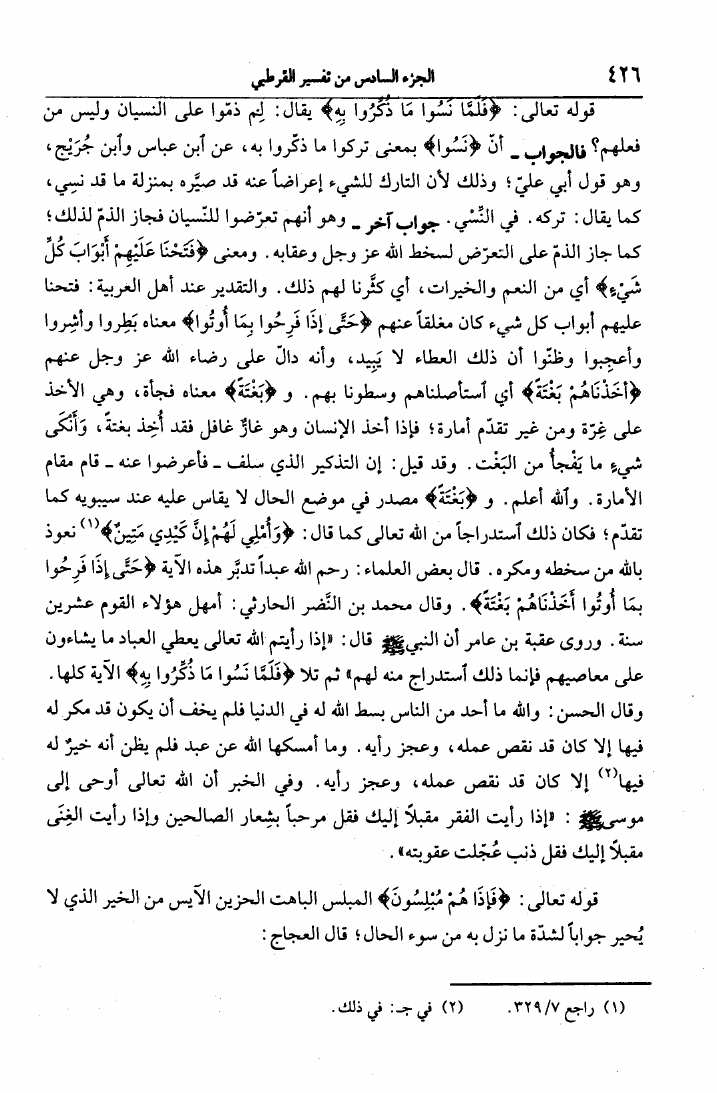 ٤٢٦
الجزء السادس من تفسير القرطبي
قوله تعالى: ﴿فَلَمَّا نَسُوا مَا ذُكِّرُوا بِهِ﴾ يقال: لِمَ ذمّوا على النسيان وليس من
فعلهم؟ فالجواب ـ أنّ ﴿نَسُوا﴾ بمعنى تركوا ما ذكّروا به، عن ٱبن عباس وٱبن جُرَيْج،
وهو قول أبي عليّ؛ وذلك لأن التارك للشيء إعراضاً عنه قد صيَّره بمنزلة ما قد نسِي،
كما يقال: تركه. في النَّسْي. جواب آخر ـ وهو أنهم تعرّضوا للنّسيان فجاز الذمّ لذلك؛
كما جاز الذمّ على التعرّض لسخط الله عز وجل وعقابه. ومعنى ﴿فَتَحْنَا عَلَيْهِمْ أَبْوَابَ كُلِّ
شَيْءٍ﴾ أي من النعم والخيرات، أي كثَّرنا لهم ذلك. والتقدير عند أهل العربية: فتحنا
عليهم أبواب كل شيء كان مغلقاً عنهم ﴿حَتَّى إِذَا فَرِحُوا بِمَا أُوتُوا﴾ معناه بَطِروا وأشِروا
وأعجِبوا وظنّوا أن ذلك العطاء لا يَبِيد، وأنه دالّ على رضاء الله عز وجل عنهم
﴿أَخَذْنَاهُمْ بَغْتَةً﴾ أي ٱستأصلناهم وسطونا بهم. و ﴿بَغْتَةً﴾ معناه فجأة، وهي الأخذ
على غِرّة ومن غير تقدّم أمارة؛ فإذا أخذ الإنسان وهو غارٌّ غافل فقد أُخِذ بغتةً، وَأَنْكَى
شيءٍ ما يَفْجأُ من البَغْت. وقد قيل: إن التذكير الذي سلف ـ فأعرضوا عنه ـ قام مقام
الأمارة. وٱلله أعلم. و ﴿بَغْتَةً﴾ مصدر في موضع الحال لا يقاس عليه عند سيبويه كما
تقدّم؛ فكان ذلك ٱستدراجاً من الله تعالى كما قال: ﴿وَأُمْلِي لَهُمْ إِنَّ كَيْدِي مَتِينٌ﴾(١) نعوذ
بالله من سخطه ومكره. قال بعض العلماء: رحم الله عبداً تدبَّر هذه الآية ﴿حَتَّى إِذَا فَرِحُوا
بِمَا أُوتُوا أَخَذْنَاهُمْ بَغْتَةً﴾. وقال محمد بن النَّضر الحارثي: أمهل هؤلاء القوم عشرين
سنة. وروى عقبة بن عامر أن النبي ﷺ قال: «إذا رأيتم الله تعالى يعطي العباد ما يشاءون
على معاصيهم فإنما ذلك ٱستدراج منه لهم» ثم تلا ﴿فَلَمَّا نَسُوا مَا ذُكِّرُوا بِهِ﴾ الآية كلها.
وقال الحسن: والله ما أحد من الناس بسط الله له في الدنيا فلم يخف أن يكون قد مكر له
فيها إلا كان قد نقص عمله، وعجز رأيه. وما أمسكها الله عن عبد فلم يظن أنه خيرٌ له
فيها(٢) إلا كان قد نقص عمله، وعجز رأيه. وفي الخبر أن الله تعالى أوحى إلى
موسى ﷺ : «إذا رأيت الفقر مقبلاً إليك فقل مرحباً بشِعار الصالحين وإذا رأيت الغِنَى
مقبلاً إليك فقل ذنب عُجّلت عقوبته».
قوله تعالى: ﴿فَإِذَا هُمْ مُبْلِسُونَ﴾ المبلس الباهت الحزين الآيس من الخير الذي لا
يُحير جواباً لشدّة ما نزل به من سوء الحال؛ قال العجاج:
(١) راجع ٣٢٩/٧. (٢) في جـ: في ذلك.